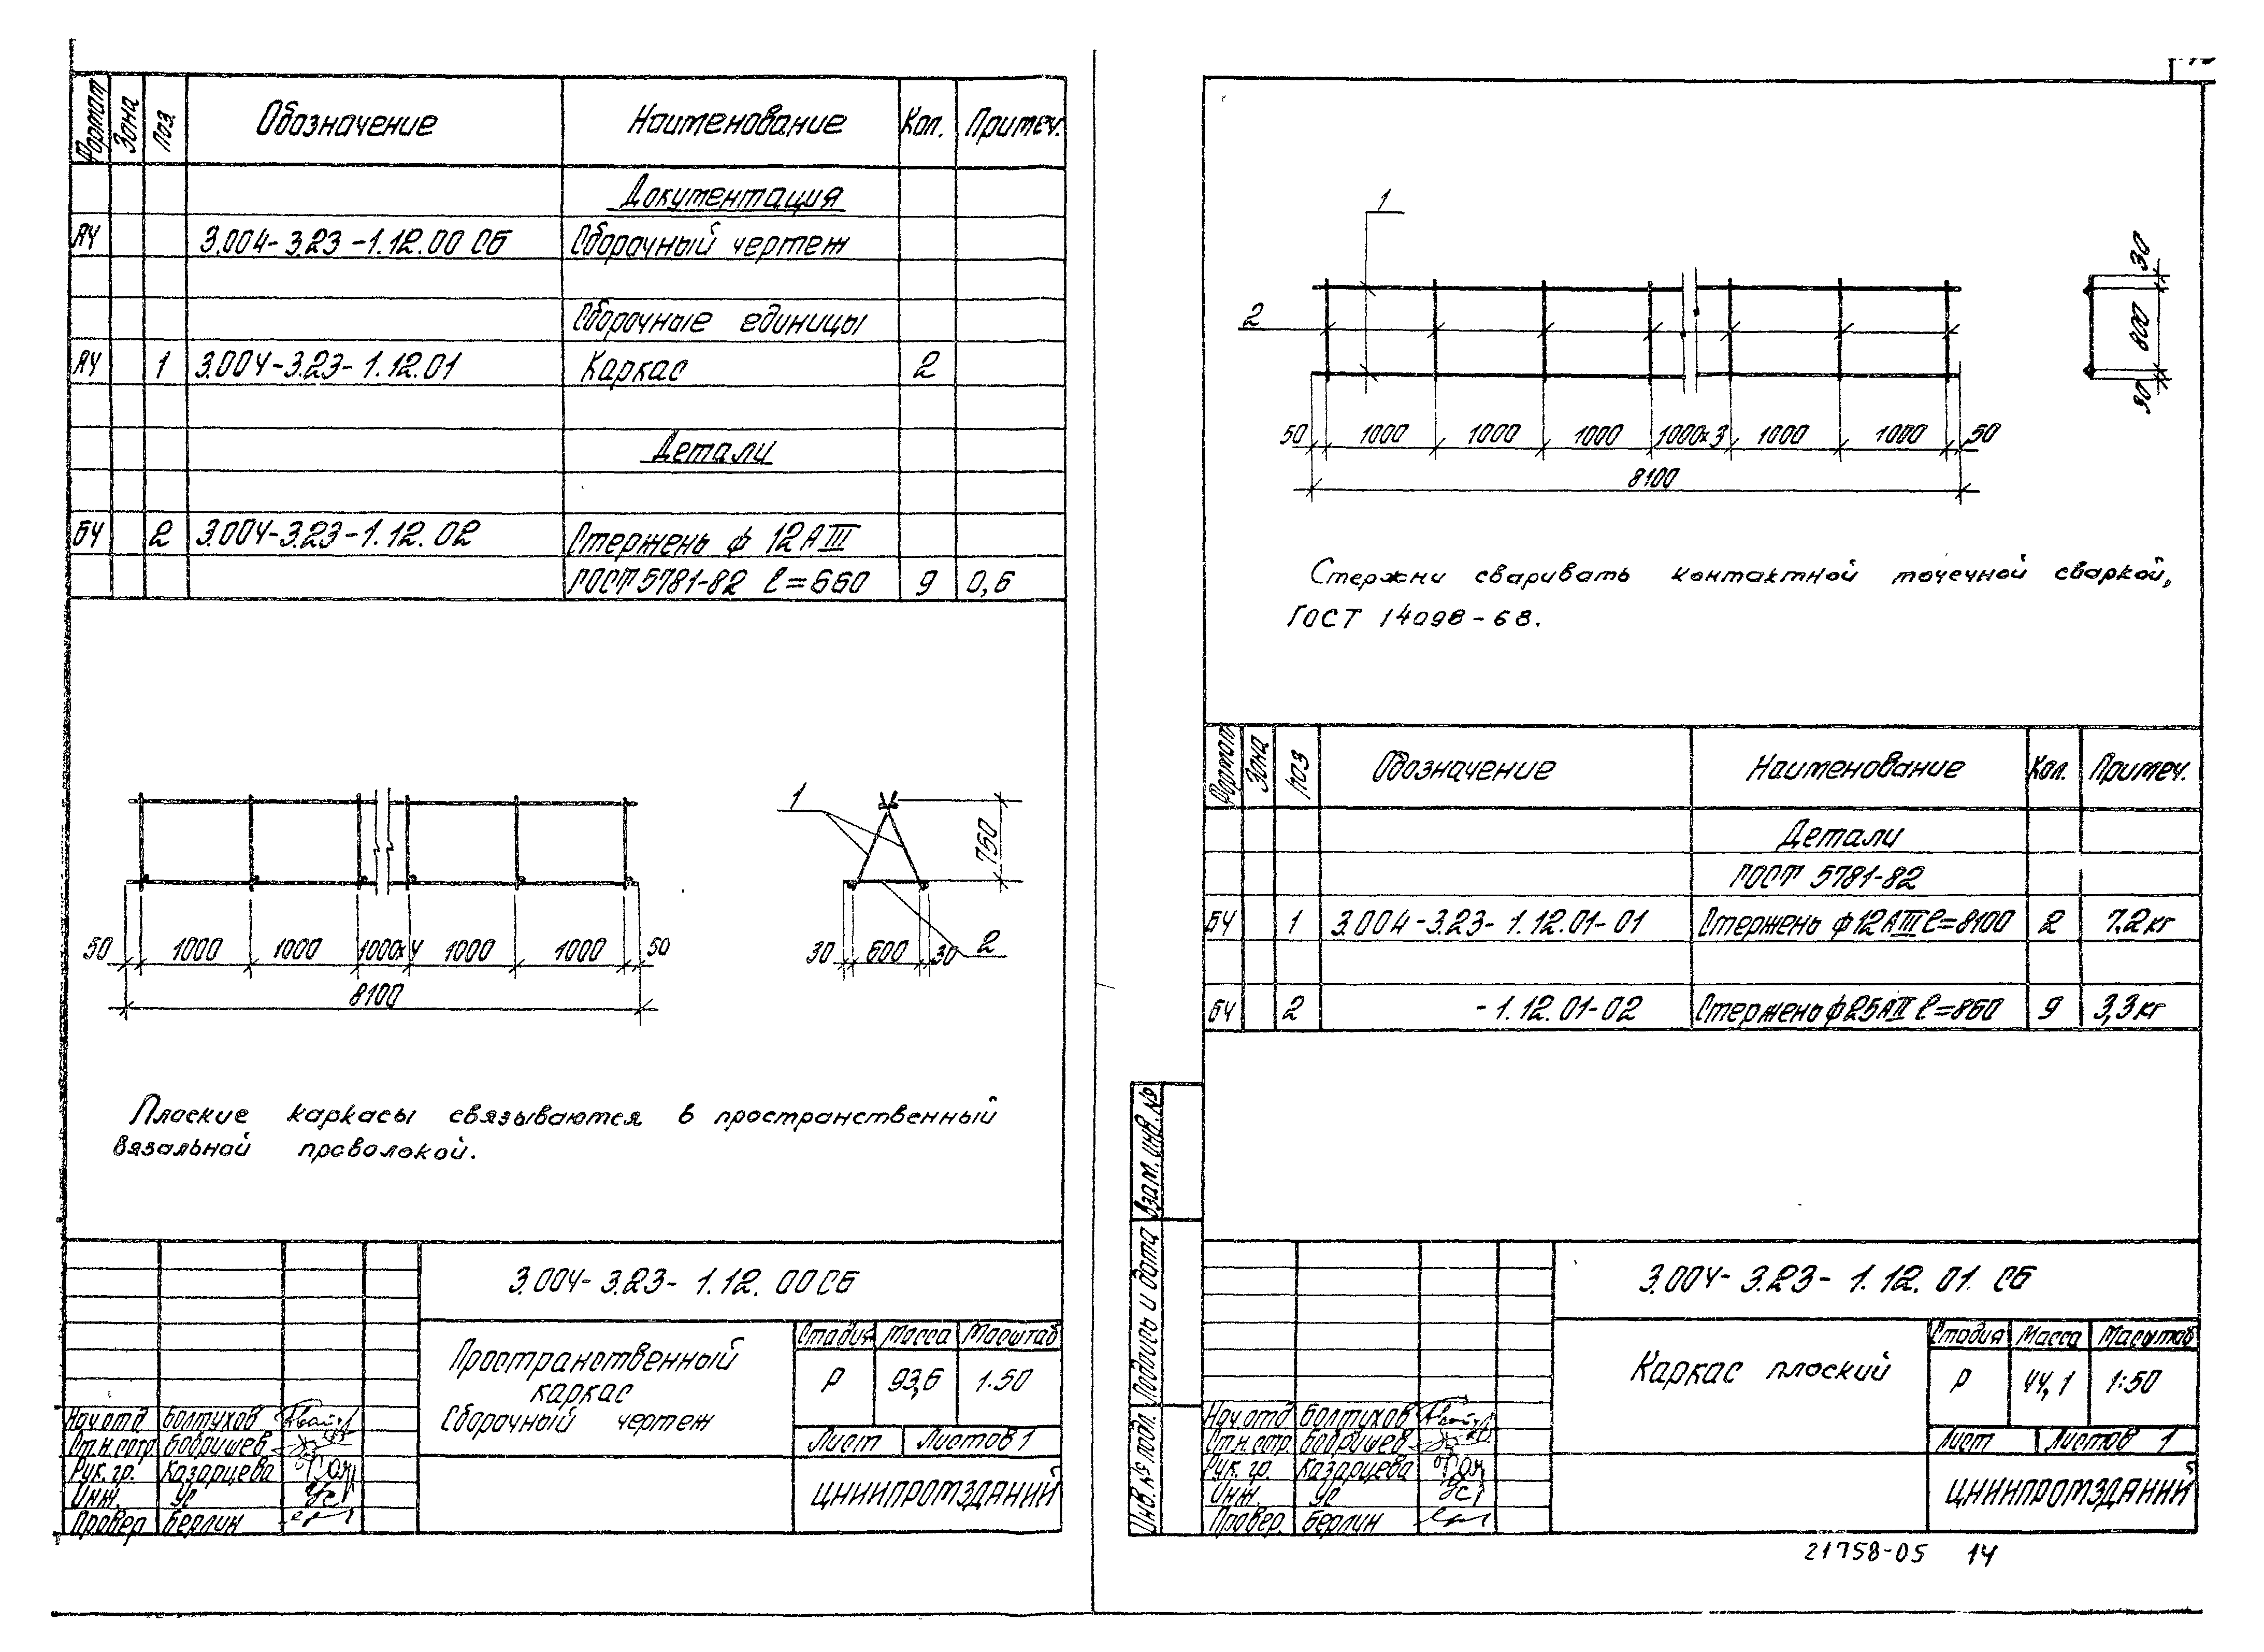 Формат Зона Поз. Обозначение Наименование Кол. Примеч.
Документация
А4 3.004-3.23-1.12.00 СБ Сборочный чертеж
Сборочные единицы
А4 1 3.004-3.23-1.12.01 Каркас 2
Детали
БЧ 2 3.004-3.23-1.12.02 Стержень ф 12АIII
ГОСТ 5781-82 ℓ=660 9 0,6
1
750
50 1000 1000 1000х4 1000 1000 50
8100
30 600 30 2
Плоские каркасы связываются в пространственный
вязальной проволокой.
3.004-3.23-1.12.00СБ
Пространственный
каркас
Сборочный чертеж
Стадия Масса Масштаб
Р 93,6 1:50
Лист Листов 1
ЦНИИПРОМЗДАНИЙ
Нач.отд Болтухов
Ст.н.сотр. Бобришев
Рук. гр. Казарцева
Инж. Ус
Провер Берлин
1
2
30
800
30
50 1000 1000 1000 1000х3 1000 1000 50
8100
Стержни сваривать контактной точечной сваркой,
ГОСТ 14098-68.
Формат Зона Поз Обозначение Наименование Кол. Примеч.
Детали
ГОСТ 5781-82
БЧ 1 3.004-3.23-1.12.01-01 Стержень ф12АIII ℓ=8100 2 7,2кг
БЧ 2 -1.12.01-02 Стержень ф25АII ℓ=860 9 3,3кг
Взам. инв. №
Подпись и дата
Инв. № подл.
3.004-3.23-1.12.01.СБ
Каркас плоский
Стадия Масса Масштаб
Р 44,1 1:50
Лист Листов 1
ЦНИИПРОМЗДАНИЙ
Нач.отд Болтухов
Ст.н.сотр. Бобришев
Рук. гр. Казарцева
Инж. Ус
Провер. Берлин
21758-05 14